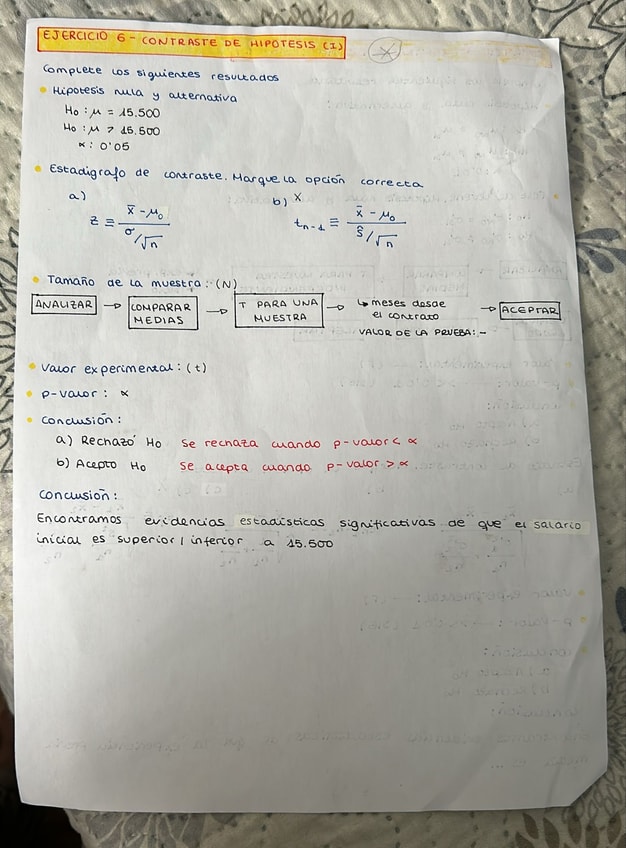 EJERCICIO 6 - CONTRASTE DE HIPOTESIS (I)
Complete los siguientes resultados
Hipotesis nula y alternativa
Ho : μ = 15.500
Ho : μ > 15.500
α : 0'05
Estadigrafo de contraste. Marque la opción correcta
a) z ≡ (x̄ - μ₀) / (σ/√n)
b) X tn-1 ≡ (x̄ - μ₀) / (ŝ/√n)
Tamaño de la muestra: (N)
ANALIZAR → COMPARAR MEDIAS → T PARA UNA MUESTRA → ↳ meses desde el contrato → ACEPTAR
VALOR DE LA PRUEBA: -
Valor experimental: (t)
p-valor : α
Conclusión:
a) Rechazó Ho Se rechaza cuando p-valor < α
b) Acepto Ho Se acepta cuando p-valor > α
Conclusión:
Encontramos evidencias estadísticas significativas de que el salario
inicial es superior / inferior a 15.500